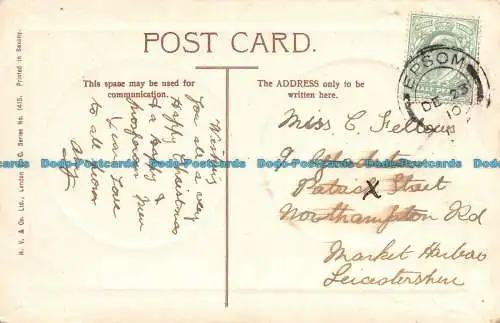 POST CARD.
This space may be used for
communication.
The ADDRESS only to be
written here.
Wishing
you all a very
Happy Christmas
& a Bright &
prosperous New
Year Love
to all from
EPSOM
DE 23
10
HALF PENNY
Miss C. Fellows
9
X Street
Northampton Rd
Market Harboro
Leicestershire
H. V. & Co. Ltd., London E.C. Series No. 1415. Printed in Saxony.
Dodo-Postcards Dodo-Postcards Dodo-Postcards Dodo-Postcards Dodo-Postcards